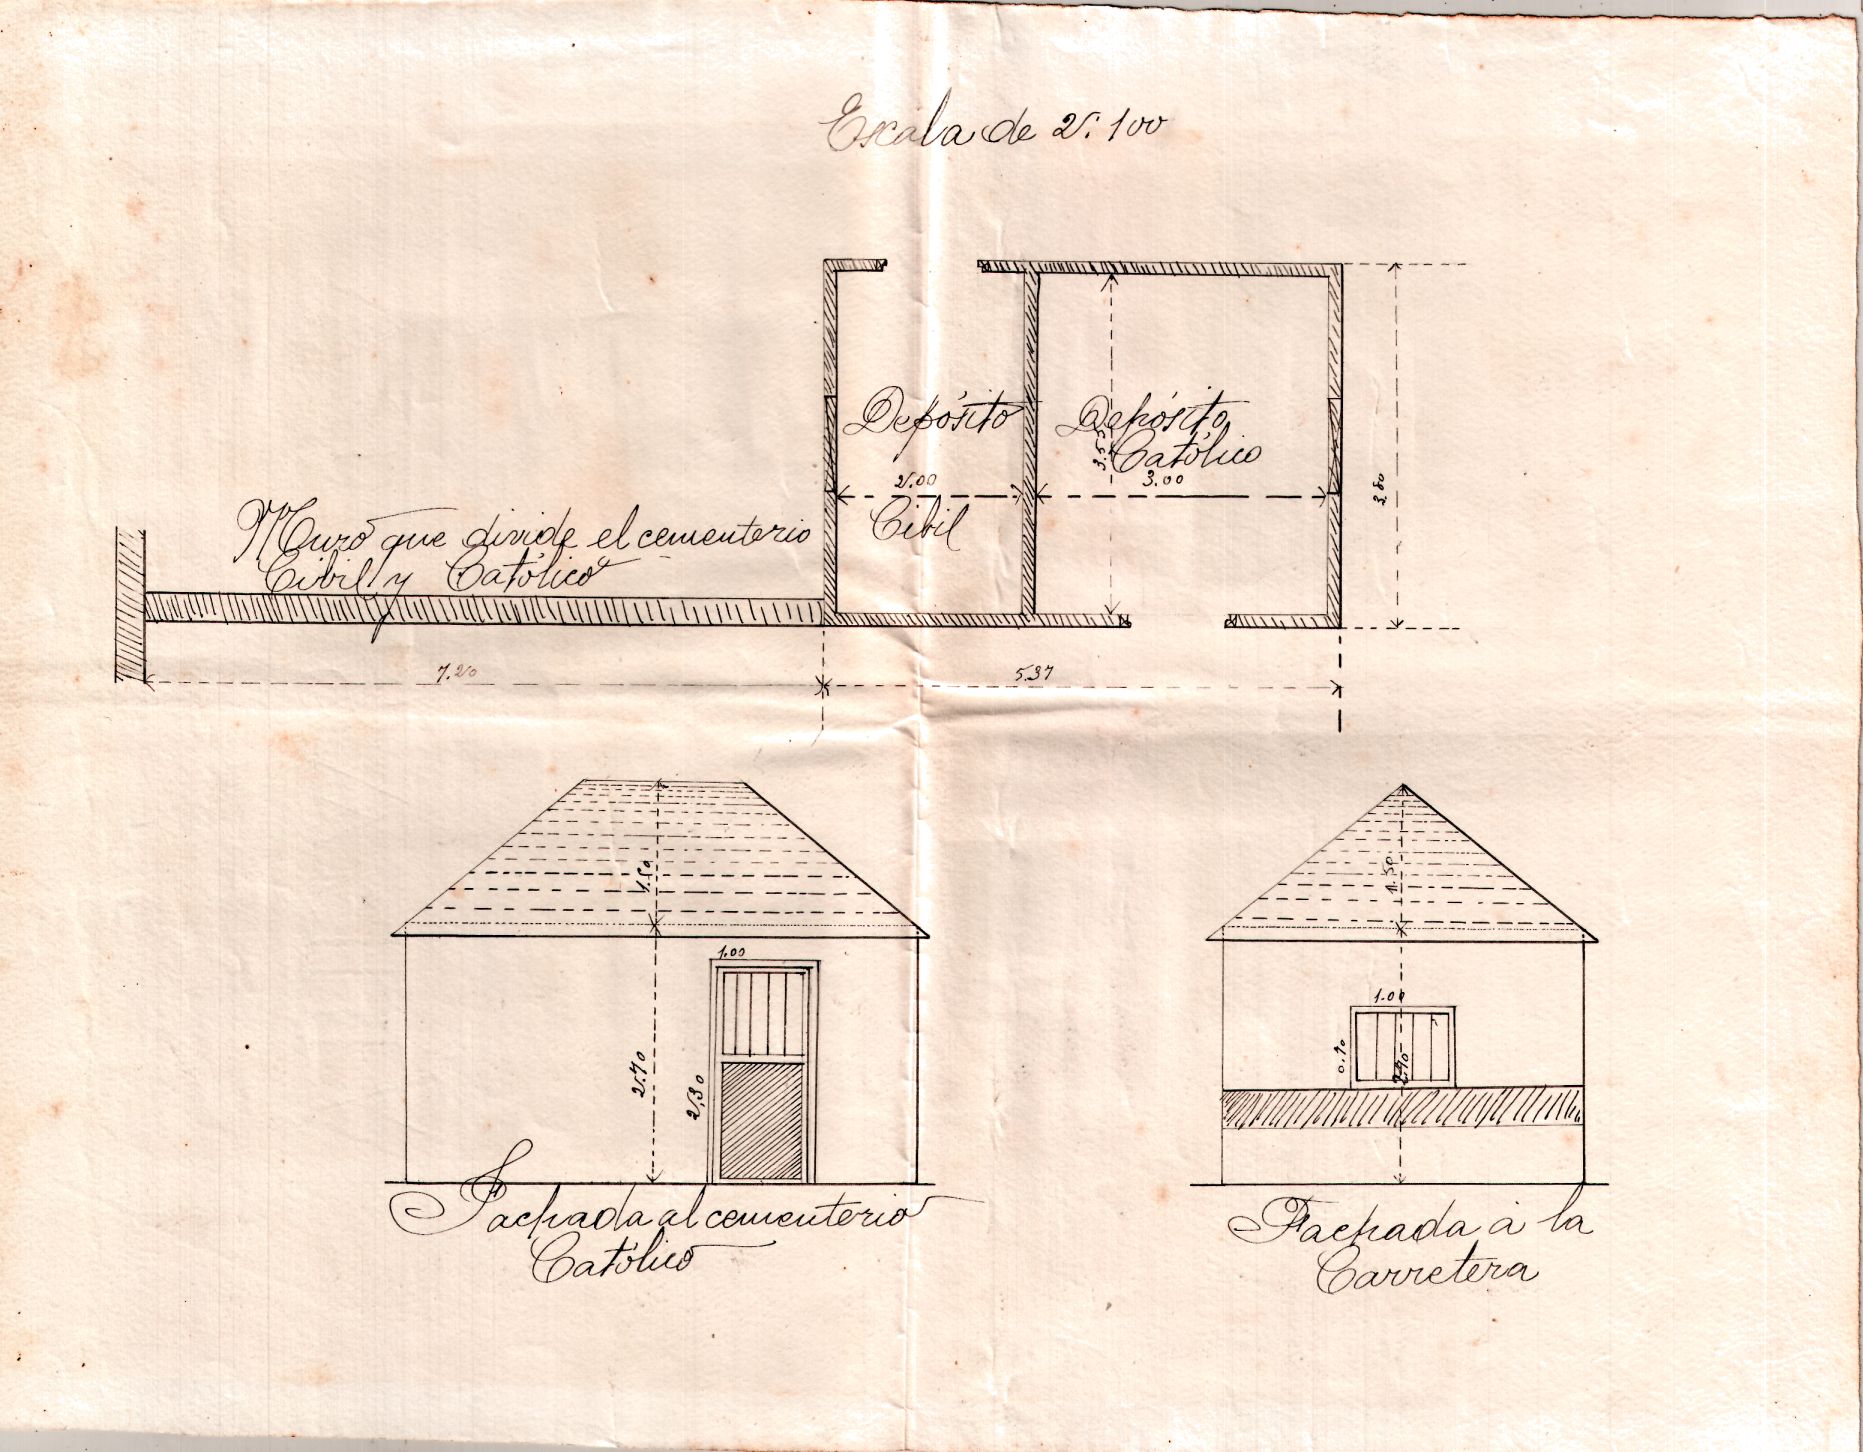 Escala de 2: 100
Depósito
2.00
Cibil
Depósito
Católico
3.55
3.00
3.80
Muro que divide el cementerio
Cibil y Católico
7.20
5.37
1.50
1.00
2.70
2,30
Fachada al cementerio
Católico
1.50
1.00
0.70
2.70
Fachada á la
Carretera